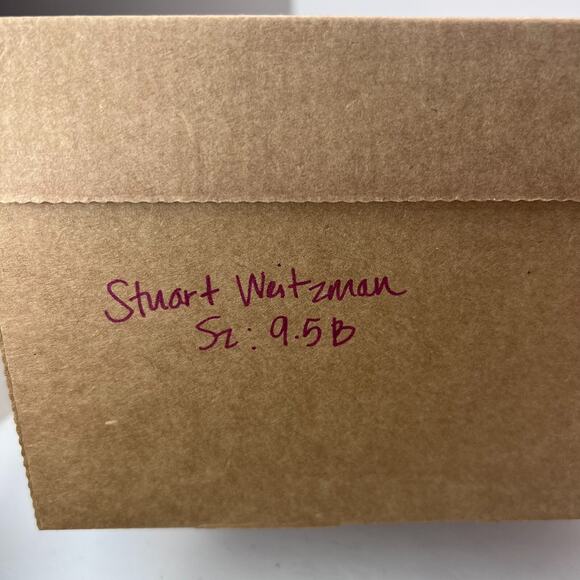 Stuart Weitzman
Sz: 9.5B